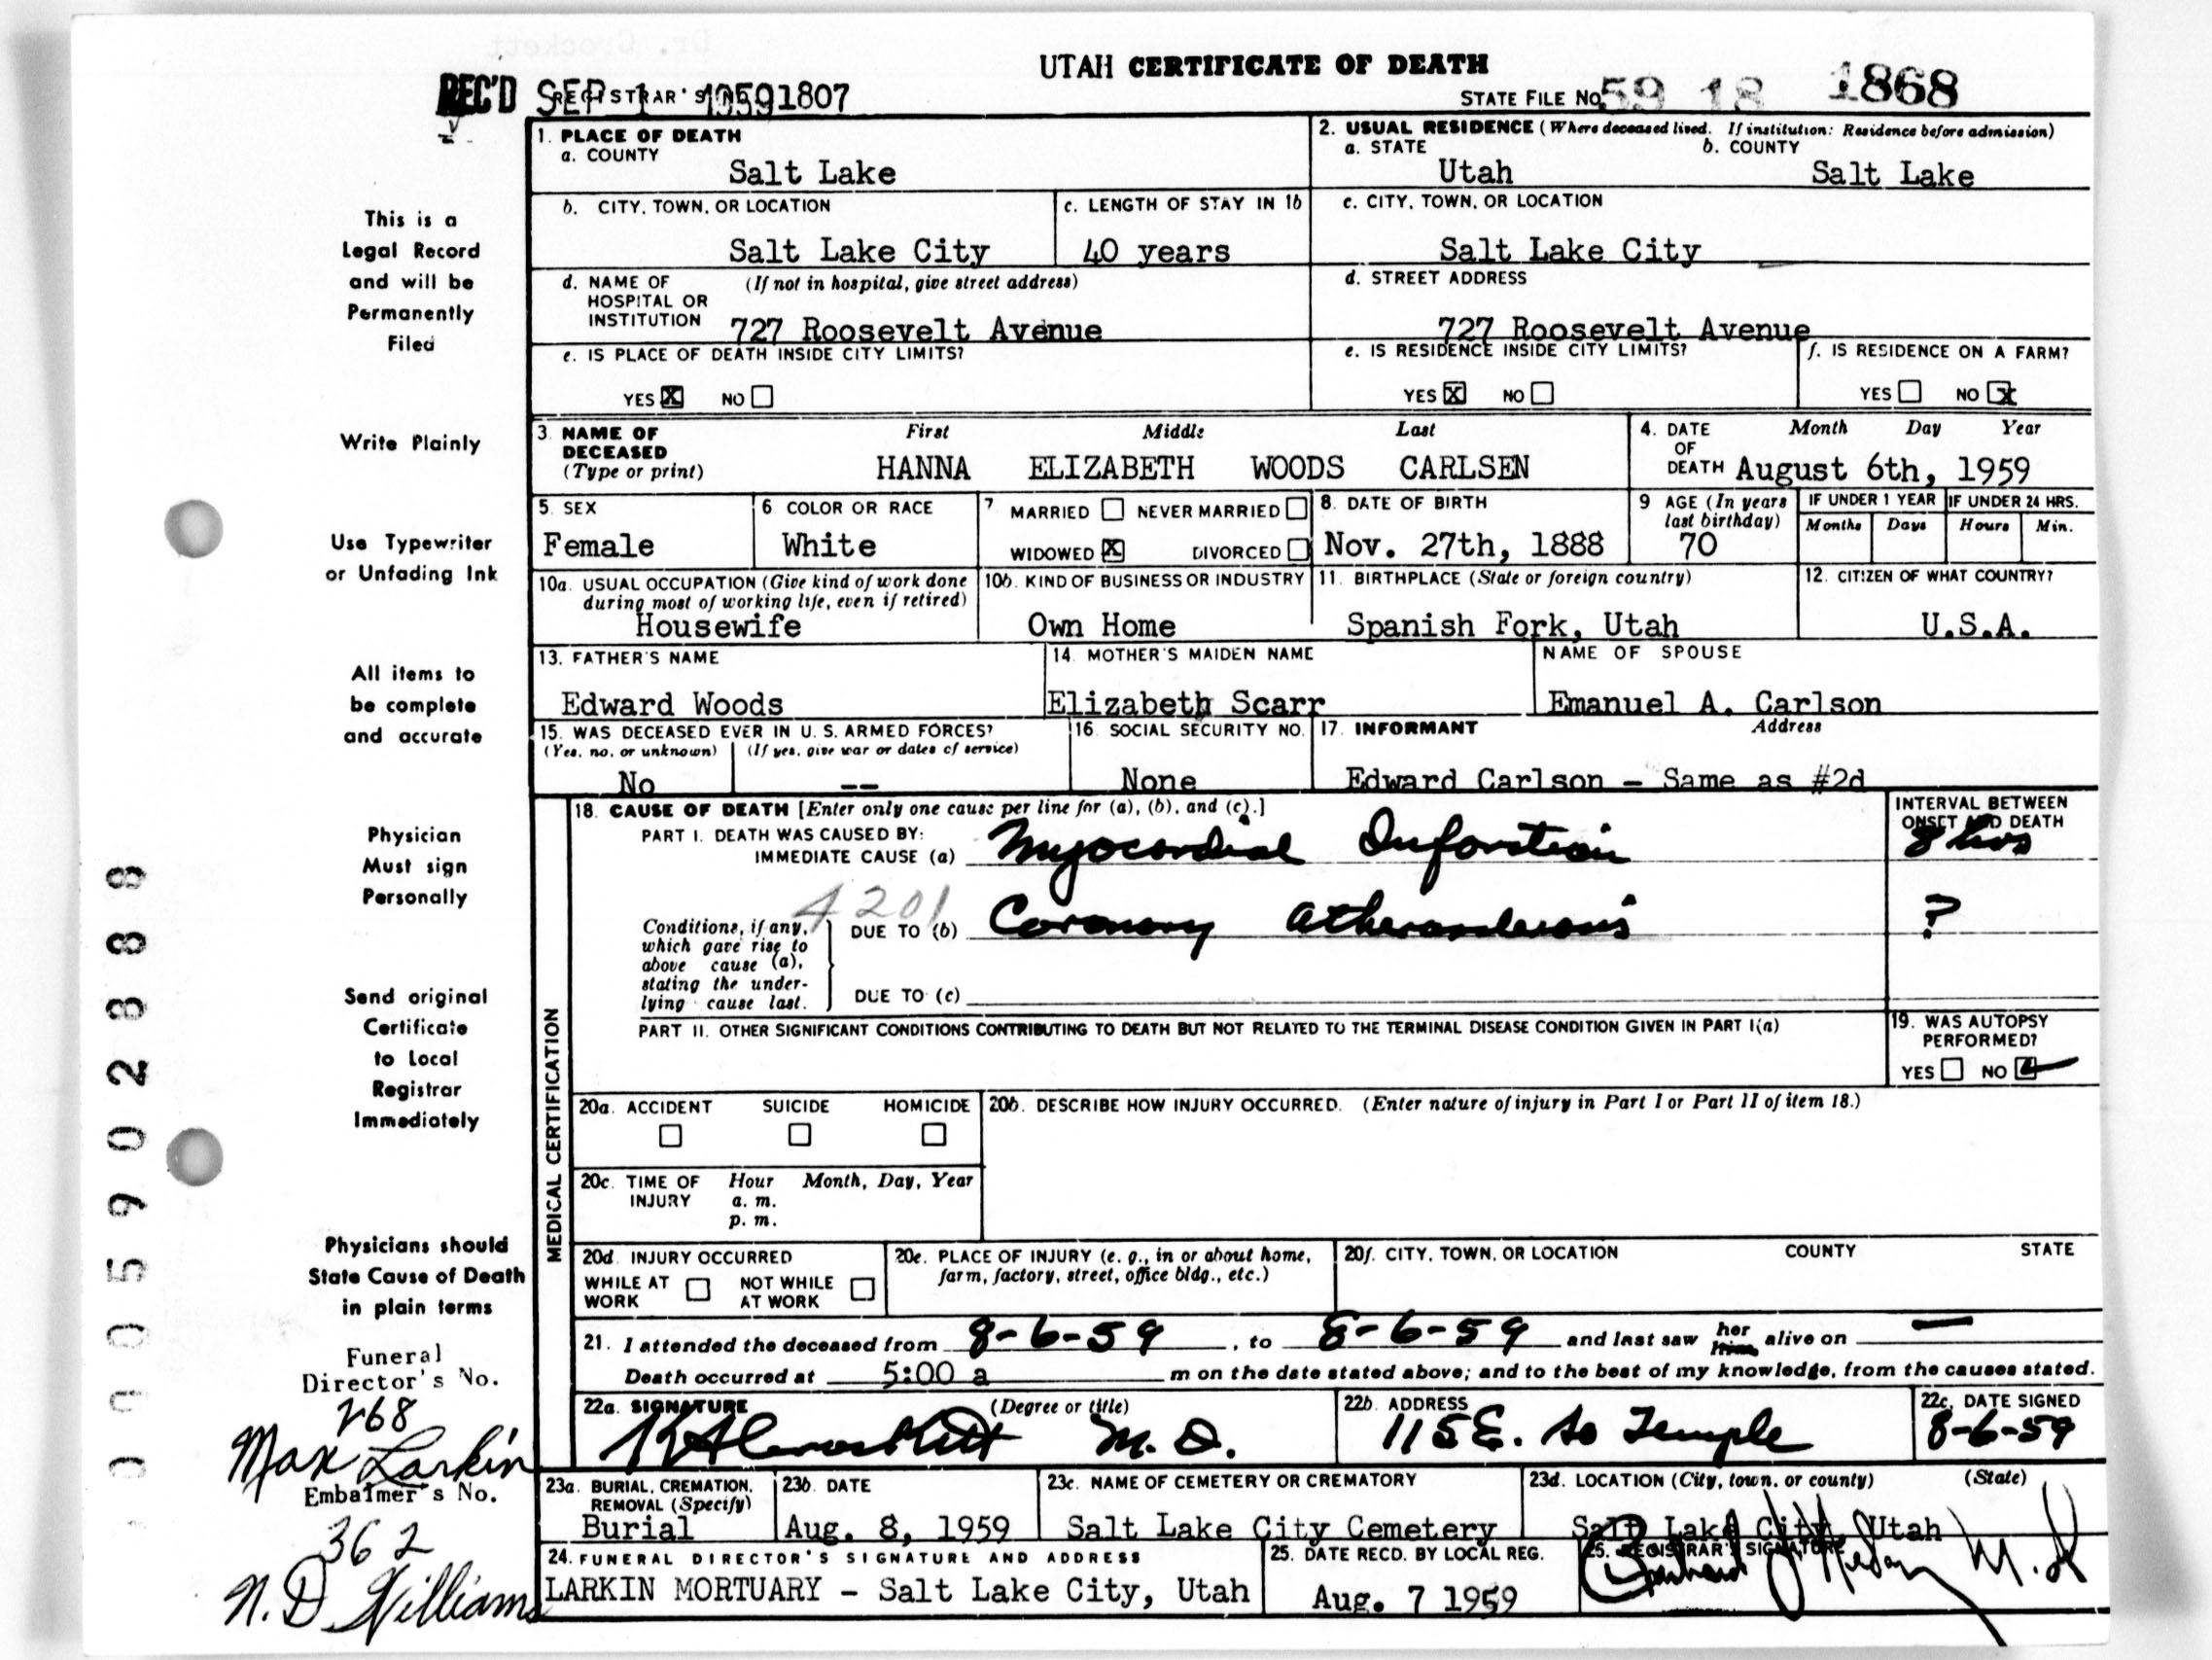 UTAH CERTIFICATE OF DEATH
REC'D SEP 1 1959 REGISTRAR'S 1807
STATE FILE No. 59 18 1868
1. PLACE OF DEATH
a. COUNTY
Salt Lake
2. USUAL RESIDENCE (Where deceased lived. If institution: Residence before admission)
a. STATE b. COUNTY
Utah Salt Lake
b. CITY, TOWN, OR LOCATION
Salt Lake City
c. LENGTH OF STAY IN 1b
40 years
c. CITY, TOWN, OR LOCATION
Salt Lake City
d. NAME OF HOSPITAL OR INSTITUTION (If not in hospital, give street address)
727 Roosevelt Avenue
d. STREET ADDRESS
727 Roosevelt Avenue
e. IS PLACE OF DEATH INSIDE CITY LIMITS?
YES X NO
e. IS RESIDENCE INSIDE CITY LIMITS?
YES X NO
f. IS RESIDENCE ON A FARM?
YES NO X
3. NAME OF DECEASED (Type or print)
First Middle Last
HANNA ELIZABETH WOODS CARLSEN
4. DATE OF DEATH Month Day Year
August 6th, 1959
5. SEX
Female
6 COLOR OR RACE
White
7 MARRIED NEVER MARRIED
WIDOWED X DIVORCED
8. DATE OF BIRTH
Nov. 27th, 1888
9 AGE (In years last birthday)
70
IF UNDER 1 YEAR
Months Days
IF UNDER 24 HRS.
Hours Min.
10a. USUAL OCCUPATION (Give kind of work done during most of working life, even if retired)
Housewife
10b. KIND OF BUSINESS OR INDUSTRY
Own Home
11. BIRTHPLACE (State or foreign country)
Spanish Fork, Utah
12. CITIZEN OF WHAT COUNTRY?
U.S.A.
13. FATHER'S NAME
Edward Woods
14. MOTHER'S MAIDEN NAME
Elizabeth Scarr
NAME OF SPOUSE
Emanuel A. Carlson
15. WAS DECEASED EVER IN U. S. ARMED FORCES?
(Yes, no, or unknown) (If yes, give war or dates of service)
No --
16. SOCIAL SECURITY NO.
None
17. INFORMANT Address
Edward Carlson - Same as #2d
MEDICAL CERTIFICATION
18. CAUSE OF DEATH [Enter only one cause per line for (a), (b), and (c).]
INTERVAL BETWEEN ONSET AND DEATH
PART I. DEATH WAS CAUSED BY:
IMMEDIATE CAUSE (a) Myocordial Inforction 8 hrs
4201
Conditions, if any, which gave rise to above cause (a), stating the underlying cause last.
DUE TO (b) Coronary Atherosclerosis ?
DUE TO (c)
PART II. OTHER SIGNIFICANT CONDITIONS CONTRIBUTING TO DEATH BUT NOT RELATED TO THE TERMINAL DISEASE CONDITION GIVEN IN PART I(a)
19. WAS AUTOPSY PERFORMED?
YES NO
20a. ACCIDENT SUICIDE HOMICIDE
20b. DESCRIBE HOW INJURY OCCURRED. (Enter nature of injury in Part I or Part II of item 18.)
20c. TIME OF INJURY Hour Month, Day, Year
a. m.
p. m.
20d. INJURY OCCURRED
WHILE AT WORK NOT WHILE AT WORK
20e. PLACE OF INJURY (e. g., in or about home, farm, factory, street, office bldg., etc.)
20f. CITY, TOWN, OR LOCATION COUNTY STATE
21. I attended the deceased from 8-6-59, to 8-6-59 and last saw her him alive on —
Death occurred at 5:00 a m on the date stated above; and to the best of my knowledge, from the causes stated.
22a. SIGNATURE (Degree or title)
M. D.
22b. ADDRESS
115 E. So Temple
22c. DATE SIGNED
8-6-59
23a. BURIAL, CREMATION, REMOVAL (Specify)
Burial
23b. DATE
Aug. 8, 1959
23c. NAME OF CEMETERY OR CREMATORY
Salt Lake City Cemetery
23d. LOCATION (City, town, or county) (State)
Salt Lake City, Utah
24. FUNERAL DIRECTOR'S SIGNATURE AND ADDRESS
LARKIN MORTUARY - Salt Lake City, Utah
25. DATE RECD. BY LOCAL REG.
Aug. 7 1959
REGISTRAR'S SIGNATURE
M.D.
This is a
Legal Record
and will be
Permanently
Filed
Write Plainly
Use Typewriter
or Unfading Ink
All items to
be complete
and accurate
Physician
Must sign
Personally
Send original
Certificate
to Local
Registrar
Immediately
Physicians should
State Cause of Death
in plain terms
Funeral
Director's No.
268
Max Larkin
Embalmer's No.
362
N. D. Williams